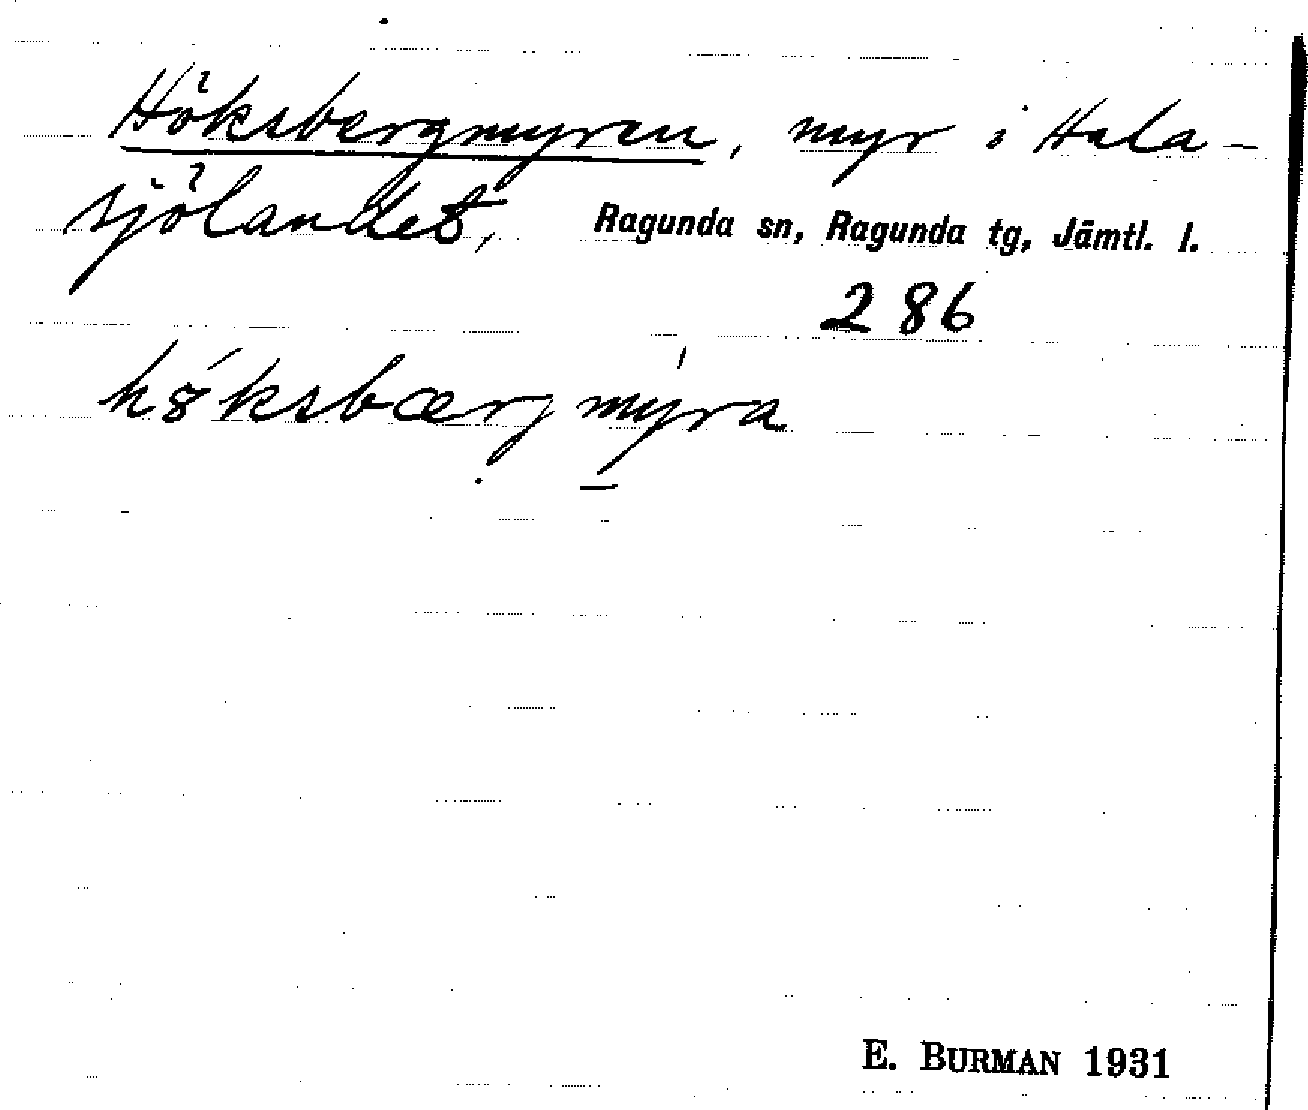 Höksbergmyren, myr i Hala-
sjölandet, Ragunda sn, Ragunda tg, Jämtl. l.
286
høksbærgmyra
E. BURMAN 1931